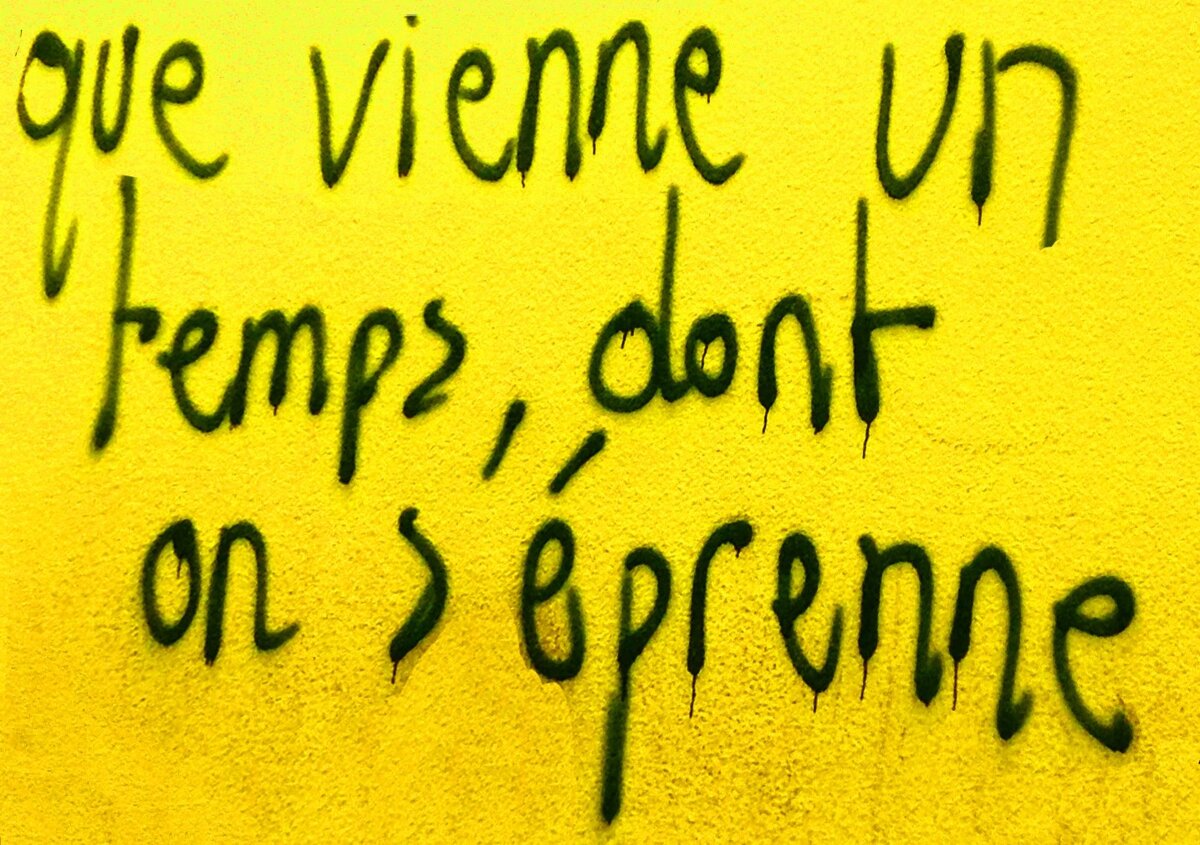 que vienne un
temps, dont
on s'éprenne